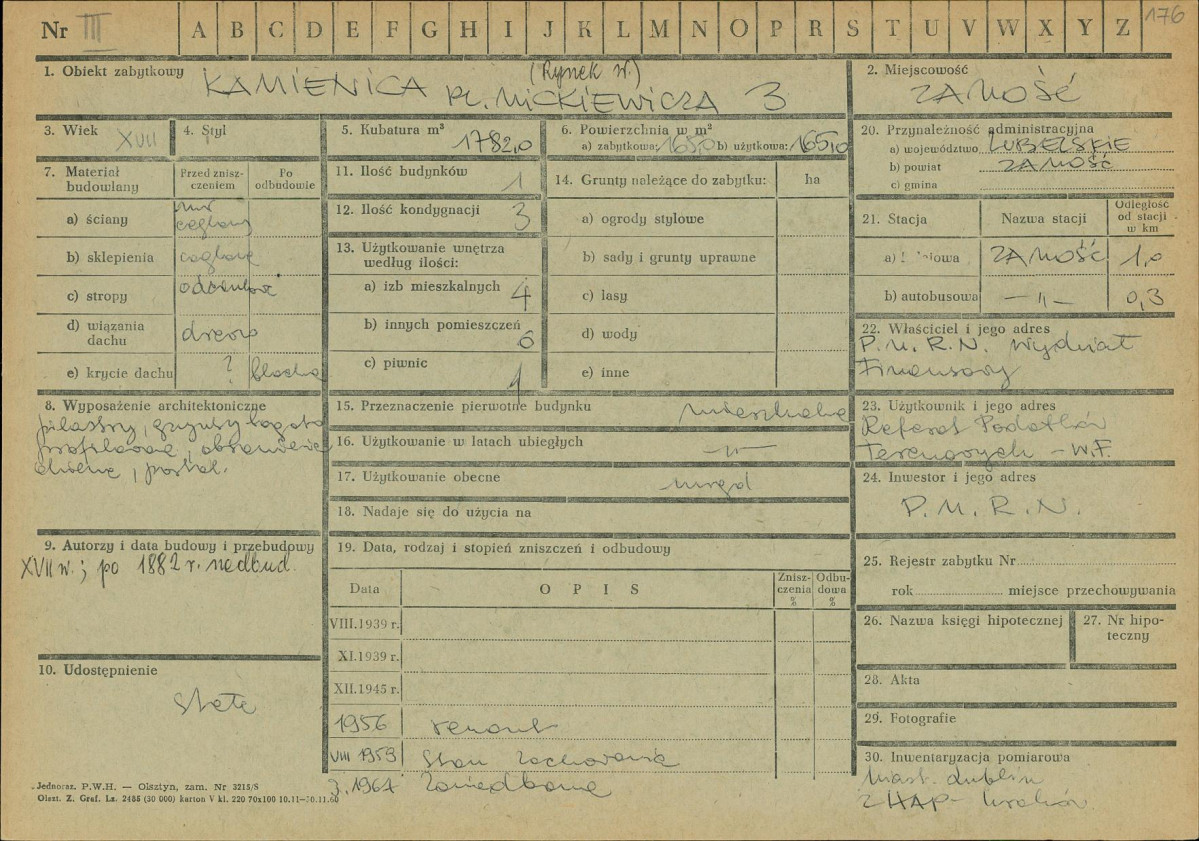 Nr III A B C D E F G H I J K L M N O P R S T U V W X Y Z 176
1. Obiekt zabytkowy KAMIENICA (Rynek W.)
PL. MICKIEWICZA 3
2. Miejscowość
ZAMOŚĆ
3. Wiek XVII
4. Styl
5. Kubatura m³
1782,0
6. Powierzchnia w m²
a) zabytkowa: 165,0 b) użytkowa: 165,0
20. Przynależność administracyjna
a) województwo LUBELSKIE
b) powiat ZAMOŚĆ
c) gmina
7. Materiał budowlany
Przed zniszczeniem
Po odbudowie
a) ściany mur ceglany
b) sklepienia ceglane
c) stropy
d) wiązania dachu drewno
e) krycie dachu ? blacha
11. Ilość budynków 1
12. Ilość kondygnacji 3
13. Użytkowanie wnętrza według ilości:
a) izb mieszkalnych 4
b) innych pomieszczeń 6
c) piwnic 1
14. Grunty należące do zabytku: ha
a) ogrody stylowe
b) sady i grunty uprawne
c) lasy
d) wody
e) inne
21. Stacja Nazwa stacji Odległość od stacji w km
a) ZAMOŚĆ 1,0
b) autobusowa —"— 0,3
22. Właściciel i jego adres
P.M.R.N. Wydział
Finansowy
8. Wyposażenie architektoniczne
pilastry, gzymsy bogato
profilowane, obramienia
okienne, portal.
15. Przeznaczenie pierwotne budynku mieszkalne
16. Użytkowanie w latach ubiegłych —"—
17. Użytkowanie obecne urząd
18. Nadaje się do użycia na
23. Użytkownik i jego adres
Referat Podatków
Terenowych - W.F.
24. Inwestor i jego adres
P.M.R.N.
9. Autorzy i data budowy i przebudowy
XVII w.; po 1882 r. nadbud.
19. Data, rodzaj i stopień zniszczeń i odbudowy
Data OPIS Zniszczenia % Odbudowa %
VIII.1939 r.
XI.1939 r.
XII.1945 r.
1956 remont
VIII 1959 Stan zachowania
1964 zaniedbane
25. Rejestr zabytku Nr
rok miejsce przechowywania
26. Nazwa księgi hipotecznej
27. Nr hipoteczny
28. Akta
29. Fotografie
30. Inwentaryzacja pomiarowa
Lublin
ZHAP - Kraków
10. Udostępnienie
Stałe
Jednoraz. P.W.H. — Olsztyn, zam. Nr 3215/S
Olszt. Z. Graf. Lz. 2486 (30 000) karton V kl. 220 70x100 10.11—30.11.60